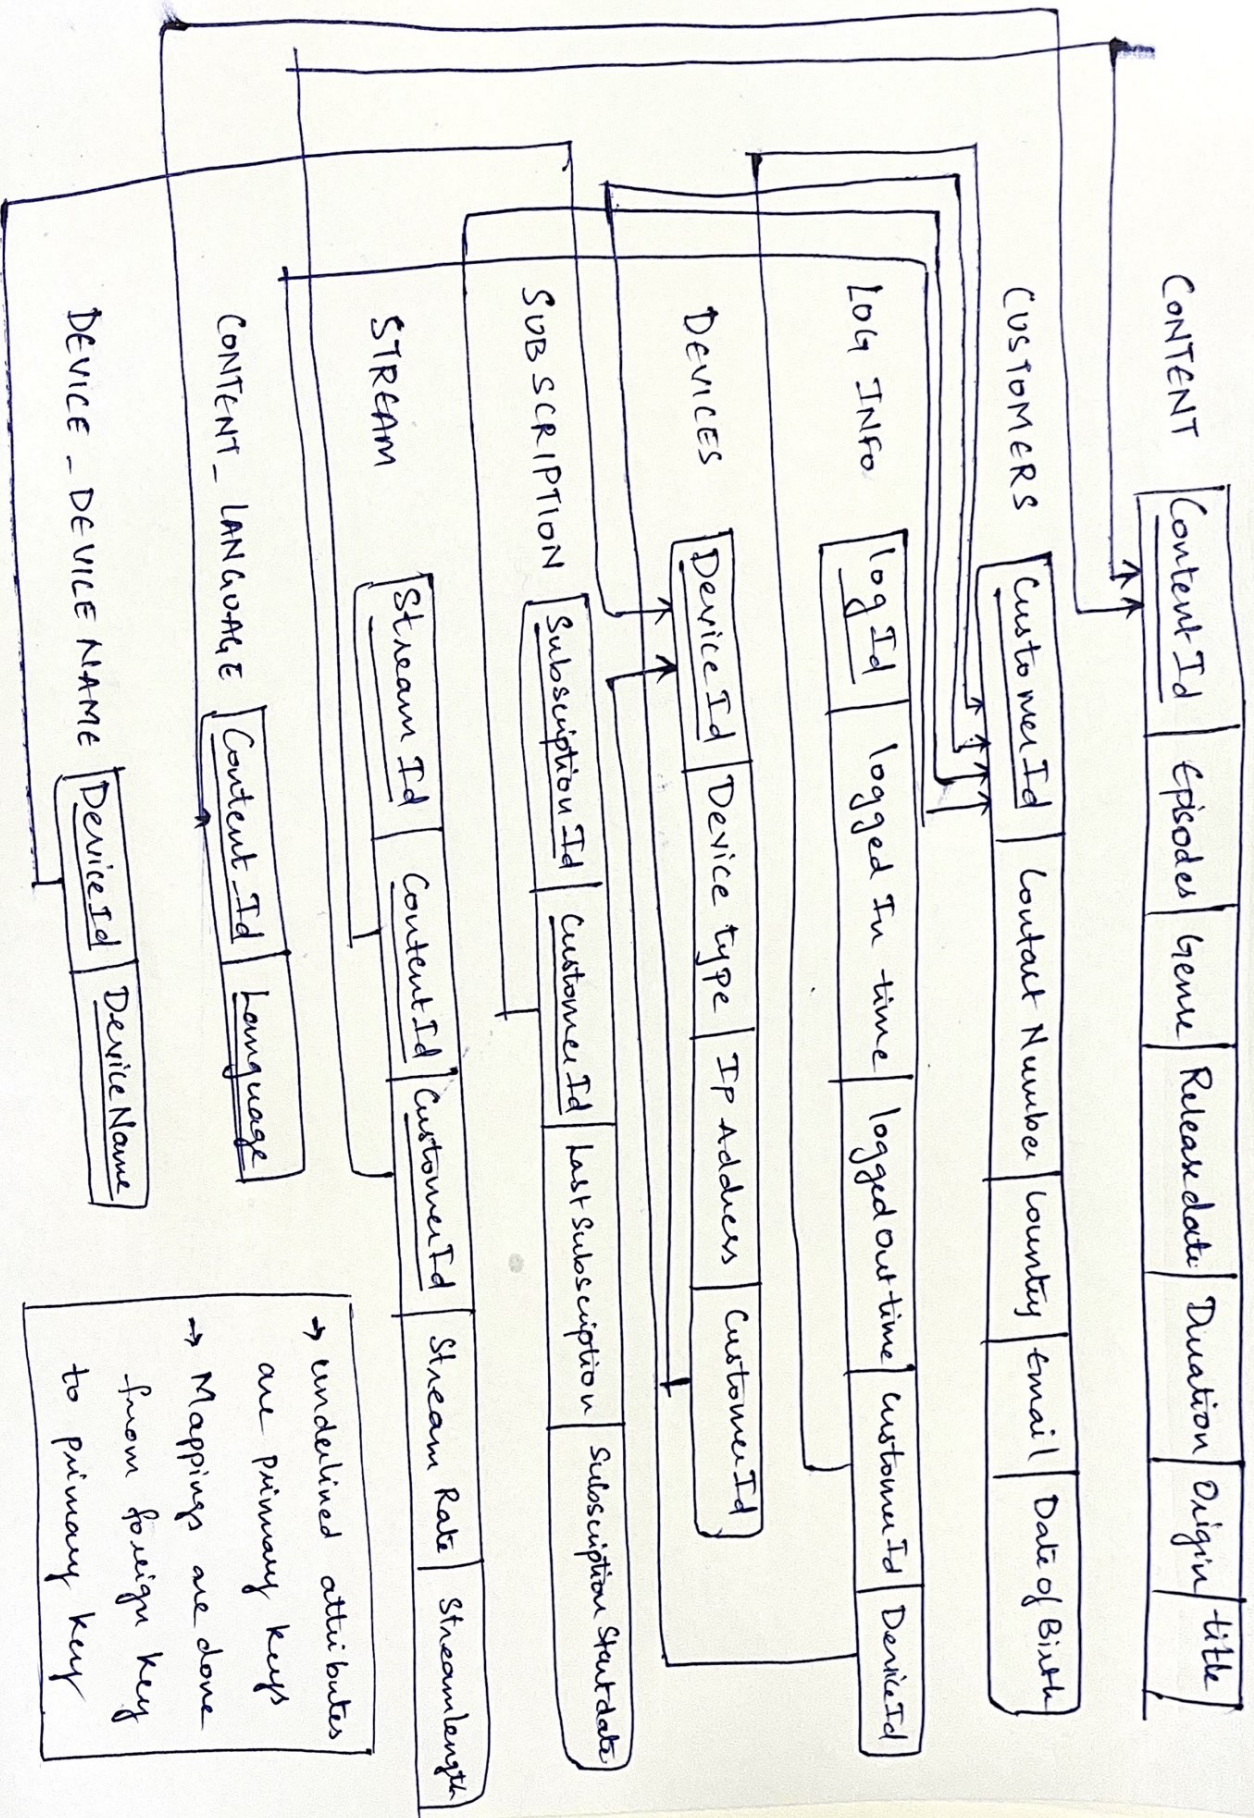 CONTENT
Content Id | Episodes | Genre | Release date | Duration | Origin | title
CUSTOMERS
Customer Id | Contact Number | Country | Email | Date of Birth
LOG INFO
log Id | logged In time | logged out time | Customer Id | Device Id
DEVICES
Device Id | Device type | IP Address | Customer Id
SUBSCRIPTION
Subscription Id | Customer Id | Last Subscription | Subscription Start date
STREAM
Stream Id | Content Id | Customer Id | Stream Rate | Stream length
CONTENT_LANGUAGE
Content_Id | Language
DEVICE_DEVICE NAME
Device Id | Device Name
→ underlined attributes
are primary keys
→ Mappings are done
from foreign key
to primary key